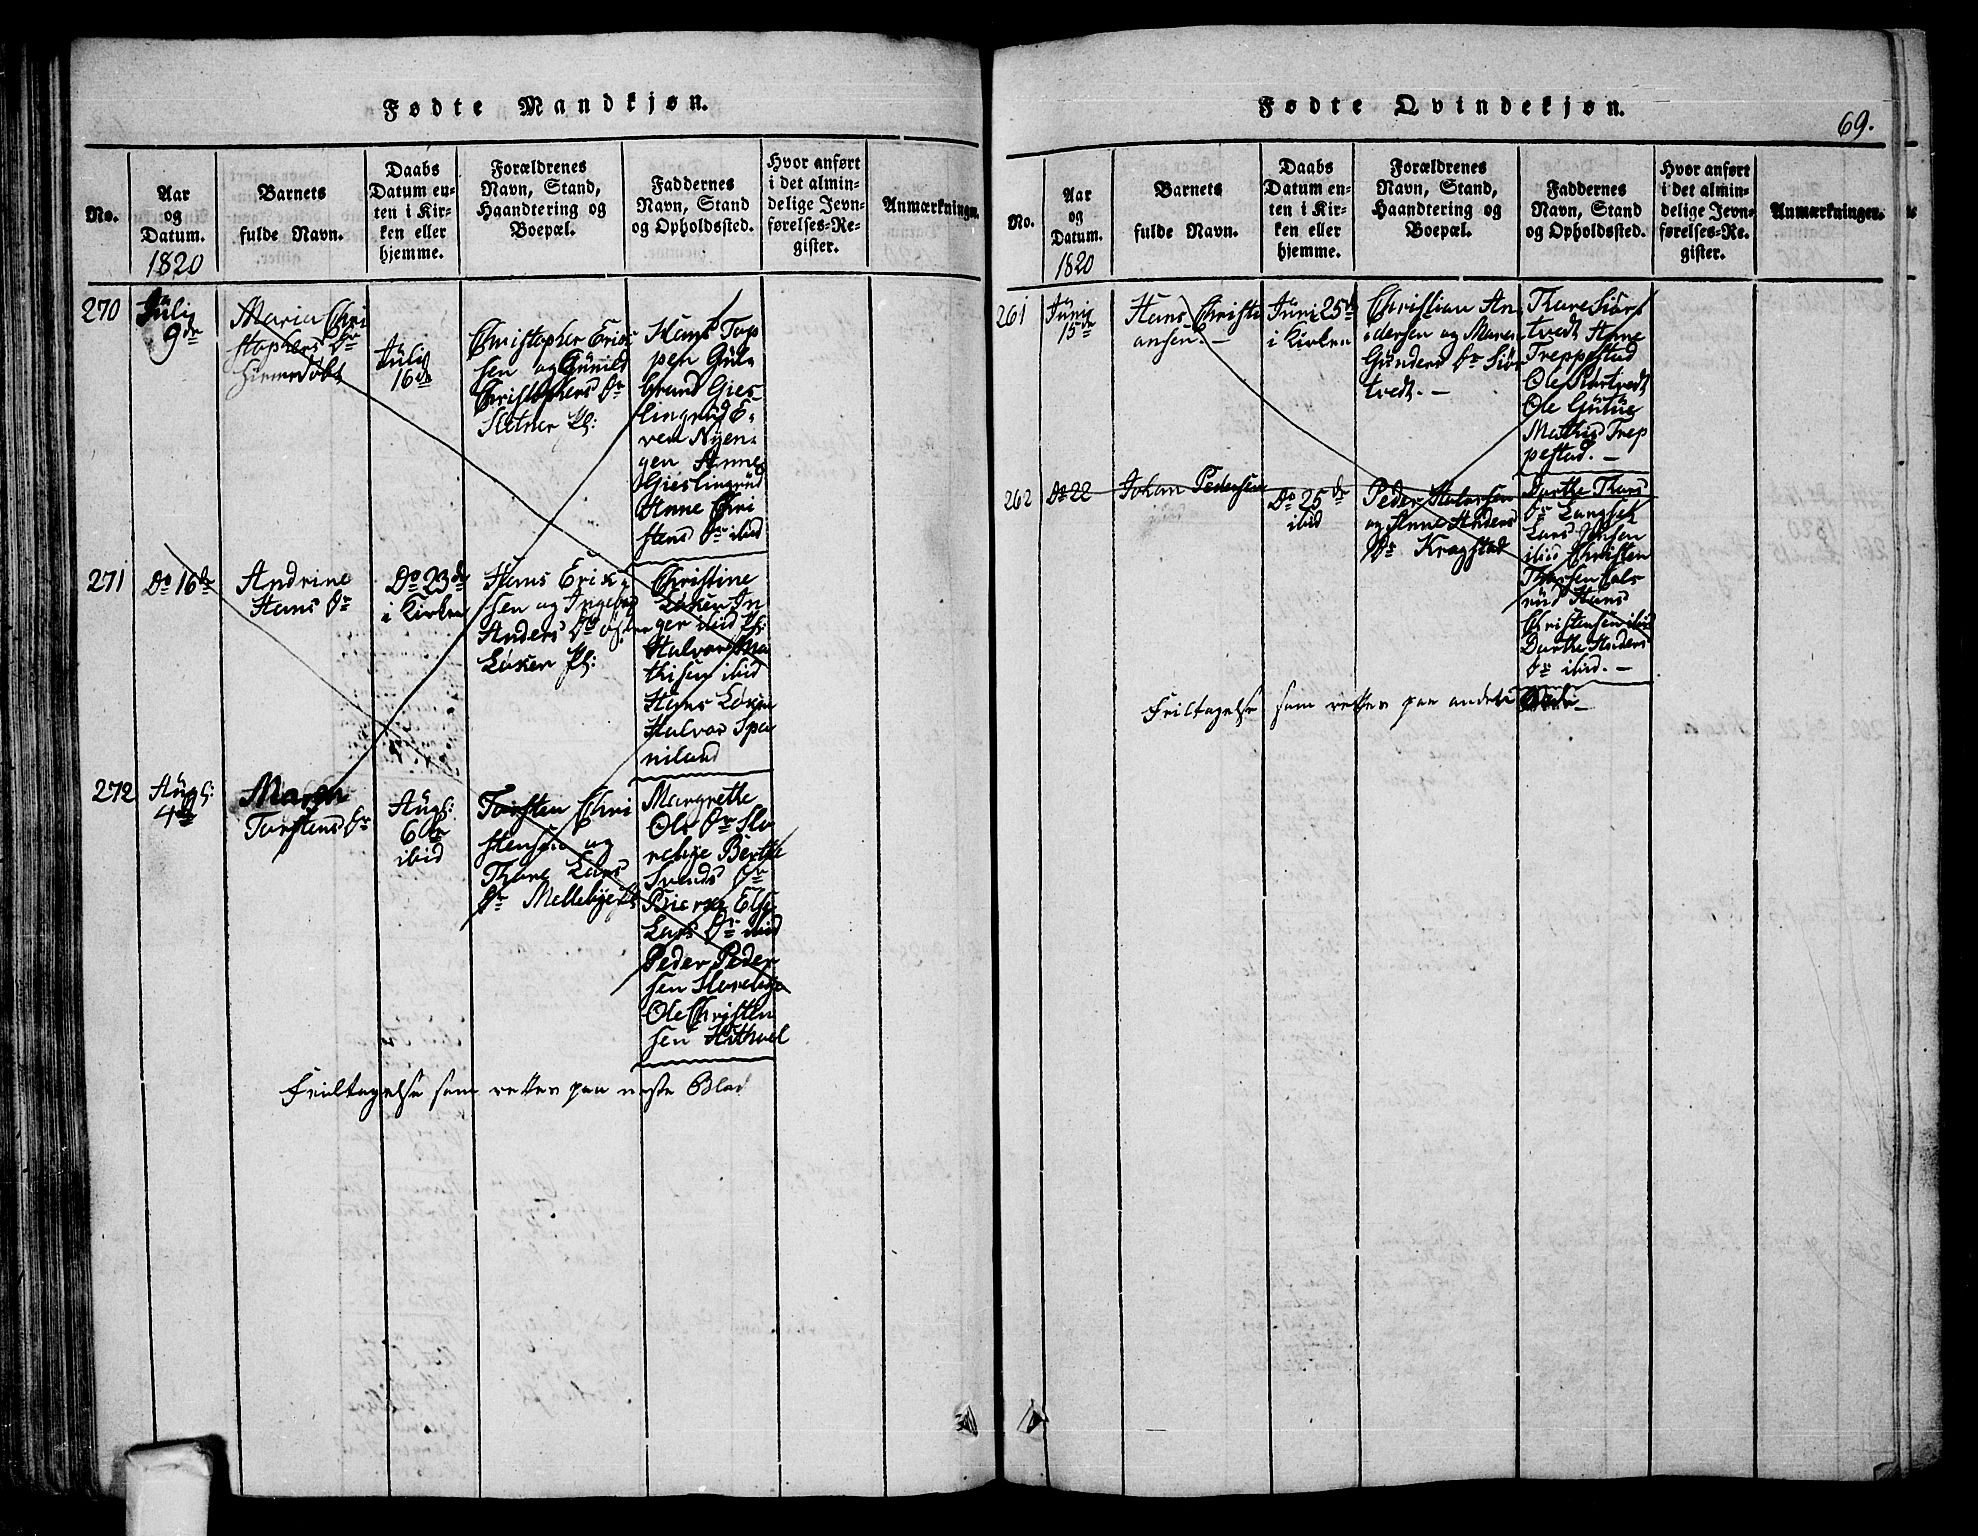 Fødte Mandkjøn.
No.
Aar
og
Datum.
1820
Barnets
fulde Navn.
Daabs
Datum en-
ten i Kir-
ken eller
hjemme.
Forældrenes
Navn, Stand,
Haandtering og
Boepæl.
Faddernes
Navn, Stand
og Opholdssted.
Hvor anført
i det almin-
delige Jevn-
førelses-Re-
gister.
Anmærkninger.
270
Julij
9de
Maria Chri
stophers Dr
hiemedøbt
Julij
16de
Christopher Erik
sen og Gunild
Christophers Dr
Sletner Pl:
Hans Top
pen Gul-
brand Gies-
lingrud E-
ven Nÿen-
gen Anne
Gieslingrud
Anne Chri
stens Dr ibid
271
Do 16de
Andrine
Hans Dr
Do 23de
i Kirken
Hans Erik-
sen og Ingebor
Anders Dr
Løken Pl:
Christine
Løken In
ger ibid
Halvor Ma
thisen ibid
Hans Løken
Halvor Spa
niland
272
Augs:
4de
Maren
Torstens Dr
Augs:
6de
ibid
Torsten Chri
stensen og
Thore Lars
Dr Mellebye
Margrethe
Ols Dr Slo
rebye Berthe
Svends Dr
Bierke Else
Lars Dr ibid
Peder Peder
sen Slorebye
Ole Christen
sen Hithuel
Feiltagelse som rettes paa neste Blad
Fødte Qvindekjøn.
69.
No.
Aar
og
Datum.
1820
Barnets
fulde Navn.
Daabs
Datum en-
ten i Kir-
ken eller
hjemme.
Forældrenes
Navn, Stand,
Haandtering og
Boepæl.
Faddernes
Navn, Stand
og Opholdssted.
Hvor anført
i det almin-
delige Jevn-
førelses-Re-
gister.
Anmærkninger.
261
Junij
15de
Hans Christi
ansen. -
Juni 25de
i Kirken
Christian An
dersen og Maren
Gunders Dr Siør
tvedt. -
Thare Siørs
tvedt Anne
Treppestad
Ole Siørtvedt
Ole Gutue
Mathis Trep
pestad. -
262
Do 22
Johan Pedersen
Do 25de
ibid
Peder Halvorsen
og Anne Anders
Dr Kragstad
Dorthe Thors
Dr Langsek
Lars Jensen
ibid Christen
Thorsen Eds
rud Hans
Christensen ibid
Dorthe Anders
Dr ibid. -
Feiltagelse som rettes paa andet Stedr